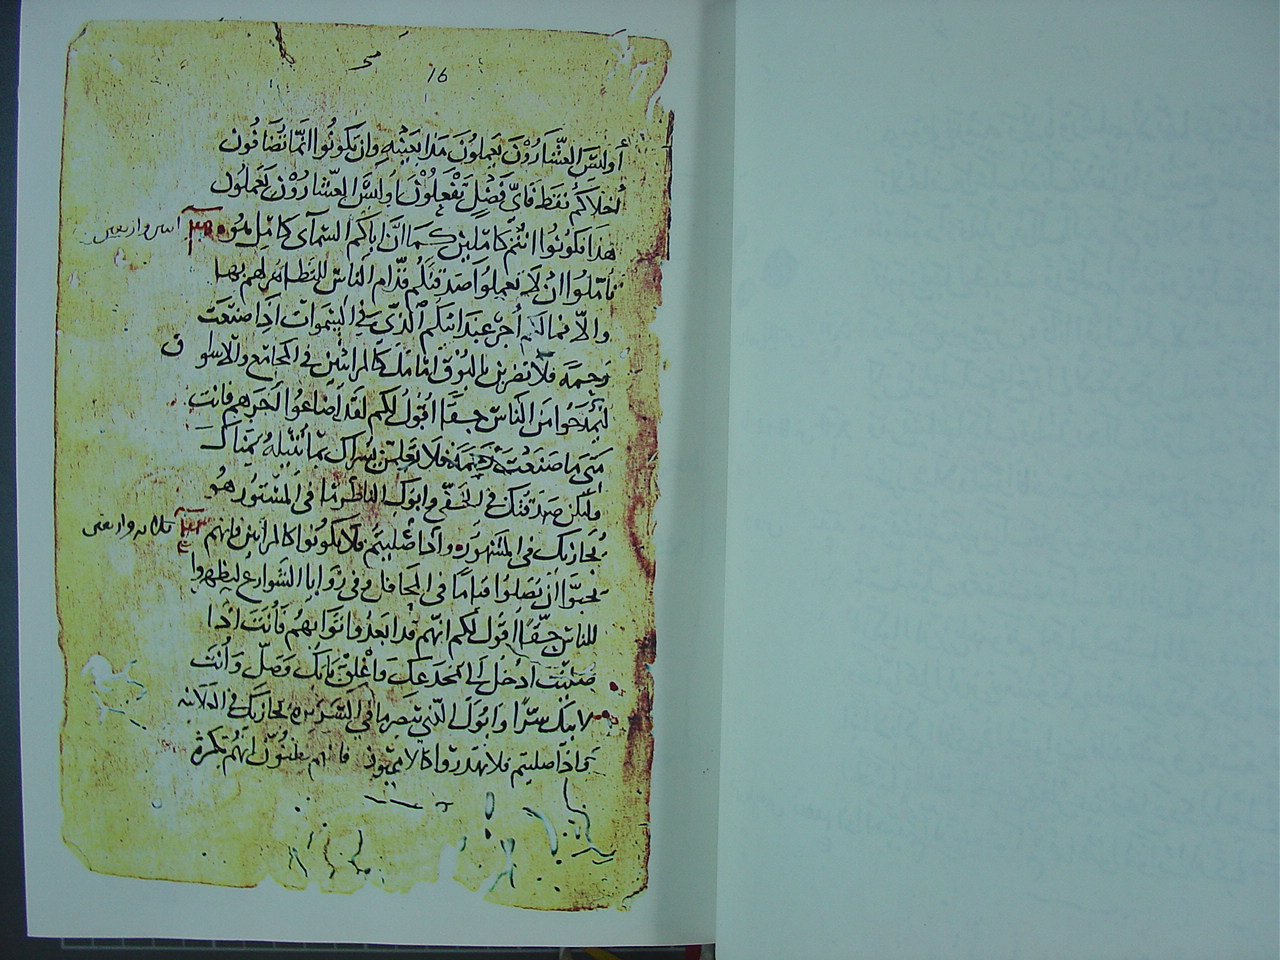 16
أوليس العشارون يعملون هذا بعينه وان تكونوا انما تضافون
اخلاكم فقط فاي فضل تفعلون اوليس العشارون يعملون
هذا فكونوا انتم كاملين كما ان اباكم السمآي كامل
تاملوا ان لا تعملوا صدقتكم قدام الناس للتظاهر لهم بها
والا فما لكم أجر عند ابيكم الذي في السموات اذا صنعت
رحمة فلا تضربن بالبوق امامك كالمرائين في المجامع والاسواق
ليمدحوا من الناس حقا اقول لكم لقد أضاعوا اجرهم فانت
متى ما صنعت رحمة فلا تعلمن يسراك بما تنيله يمناك
ولتكن صدقتك في الخفي وابوك الناظر ما في المستور هو
يجازيك في المشهور واذا صليتم فلا تكونوا كالمرائين فانهم
يحبوا أن يصلوا قياما في المحافل وفي زوايا الشوارع ليظهروا
للناس حقا اقول لكم انهم قد ابعدوا ثوابهم فأنت اذا
صليت ادخل الى مخدعك واغلق بابك وصل وأنت
لابيك سرا وابوك الذي يبصر ما في السريرة يجازيك في العلانيه
اذا صليتم فلا تهذروا كالاميين يظنون انهم بكثرة